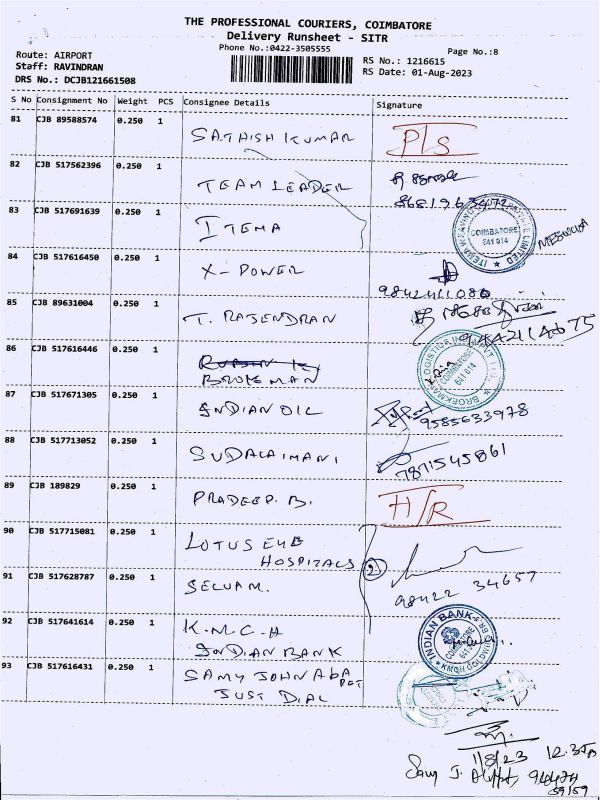 THE PROFESSIONAL COURIERS, COIMBATORE
Delivery Runsheet - SITR
Phone No.:0422-3505555
Page No.:8
Route: AIRPORT
Staff: RAVINDRAN
DRS No.: DCJB121661508
RS No.: 1216615
RS Date: 01-Aug-2023
S No Consignment No Weight PCS Consignee Details Signature
81 CJB 89588574 0.250 1 SATHISH KUMAR P/S
82 CJB 517562396 0.250 1 TEAM LEADER
8681963472
83 CJB 517691639 0.250 1 ITEMA
COIMBATORE
641 014
84 CJB 517616450 0.250 1 X-POWER
9842411086
85 CJB 89631004 0.250 1 T. RAJENDRAN
9442114675
86 CJB 517616446 0.250 1
BROKEMAN
COIMBATORE
641 014
87 CJB 517671305 0.250 1 INDIAN OIL
9585633978
88 CJB 517713052 0.250 1 SUDALAIMANI
7871545861
89 CJB 189829 0.250 1 PRADEEP. B. H/R
90 CJB 517715081 0.250 1 LOTUS EYE
HOSPITALS 2
91 CJB 517628787 0.250 1 SELVAM.
98422 34657
92 CJB 517641614 0.250 1 K.M.C.H
INDIAN BANK
INDIAN BANK
93 CJB 517616431 0.250 1 SAMY JOHN
JUST DIAL
1/8/23 12.35